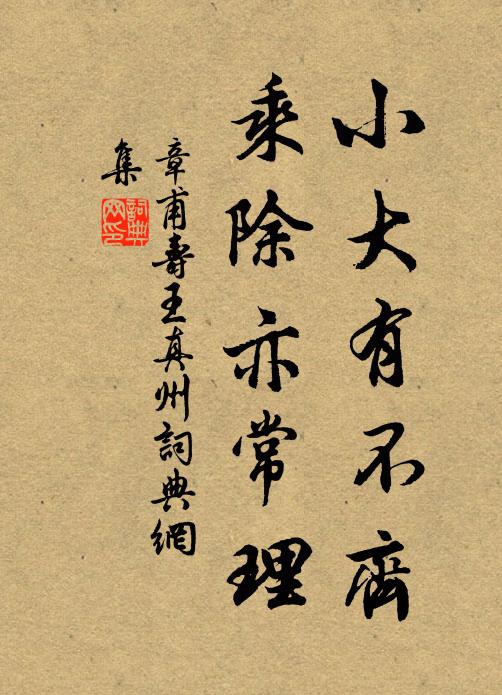 小大有不齊
乘除亦常理
章甫壽王真州詞典網
集
詞典
网印